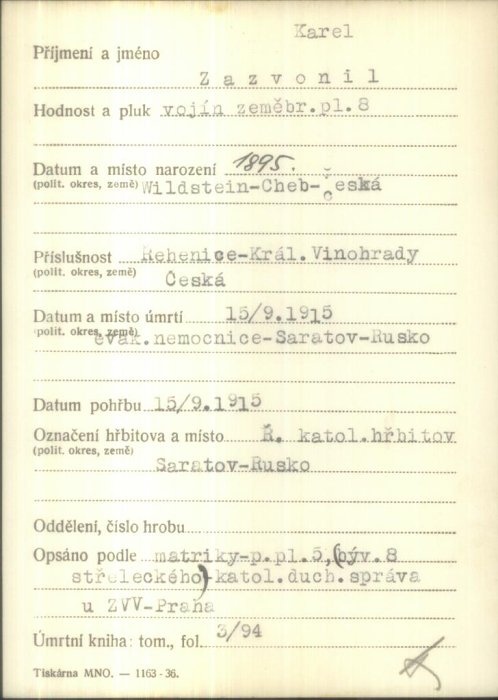 Karel
Příjmení a jméno
Zazvonil
Hodnost a pluk vojín zeměbr.pl.8
Datum a místo narození 1895.
(polit. okres, země) Wildstein-Cheb-Česká
Příslušnost Řehenice-Král.Vinohrady
(polit. okres, země) Česká
Datum a místo úmrtí 15/9.1915
(polit. okres, země) evak.nemocnice-Saratov-Rusko
Datum pohřbu 15/9.1915
Označení hřbitova a místo Ř. katol.hřbitov
(polit. okres, země)
Saratov-Rusko
Oddělení, číslo hrobu
Opsáno podle matriky-p.pl.5,(býv.8
střeleckého)-katol.duch.správa
u ZVV-Praha
Úmrtní kniha: tom., fol. 3/94
Tiskárna MNO. — 1163-36.